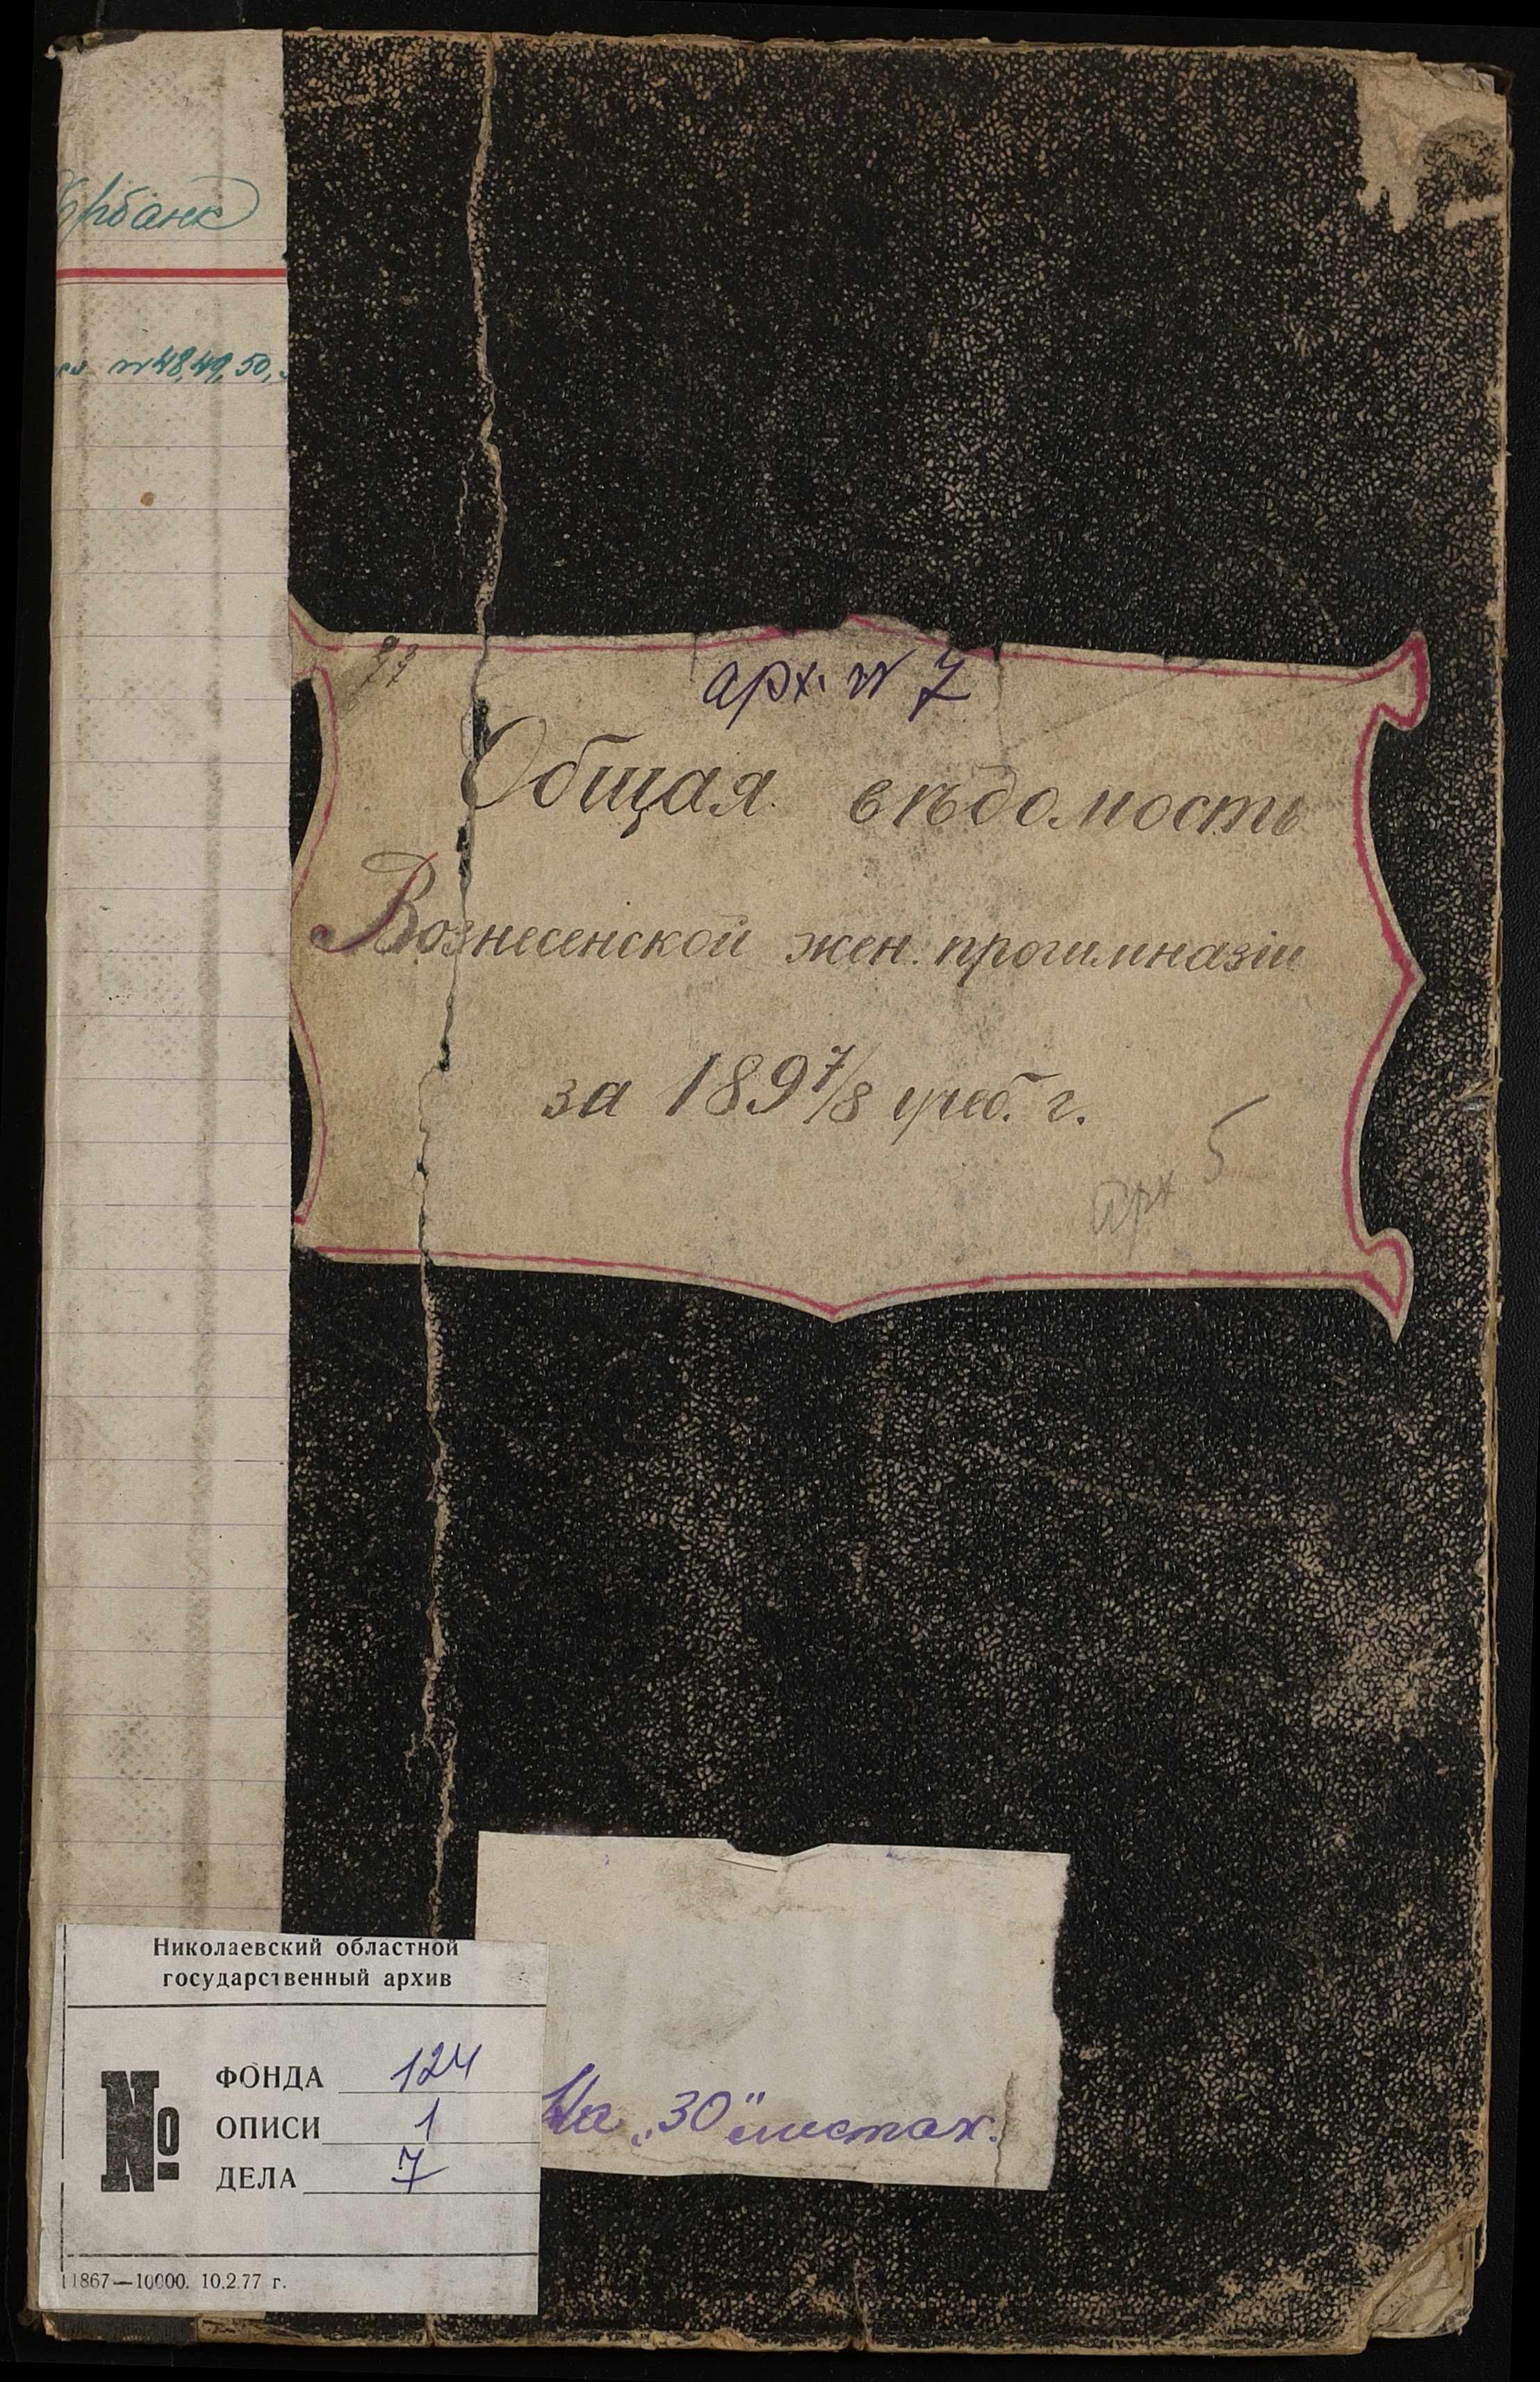 № 48, 49, 50,
арх. № 7
Общая вѣдомость
Вознесенской жен. прогимназіи
за 1897/8 учеб. г.
Арх 5
Николаевский областной
государственный архив
№
ФОНДА 124
ОПИСИ 1
ДЕЛА 7
11867—10000. 10.2.77 г.
На „30" листах.